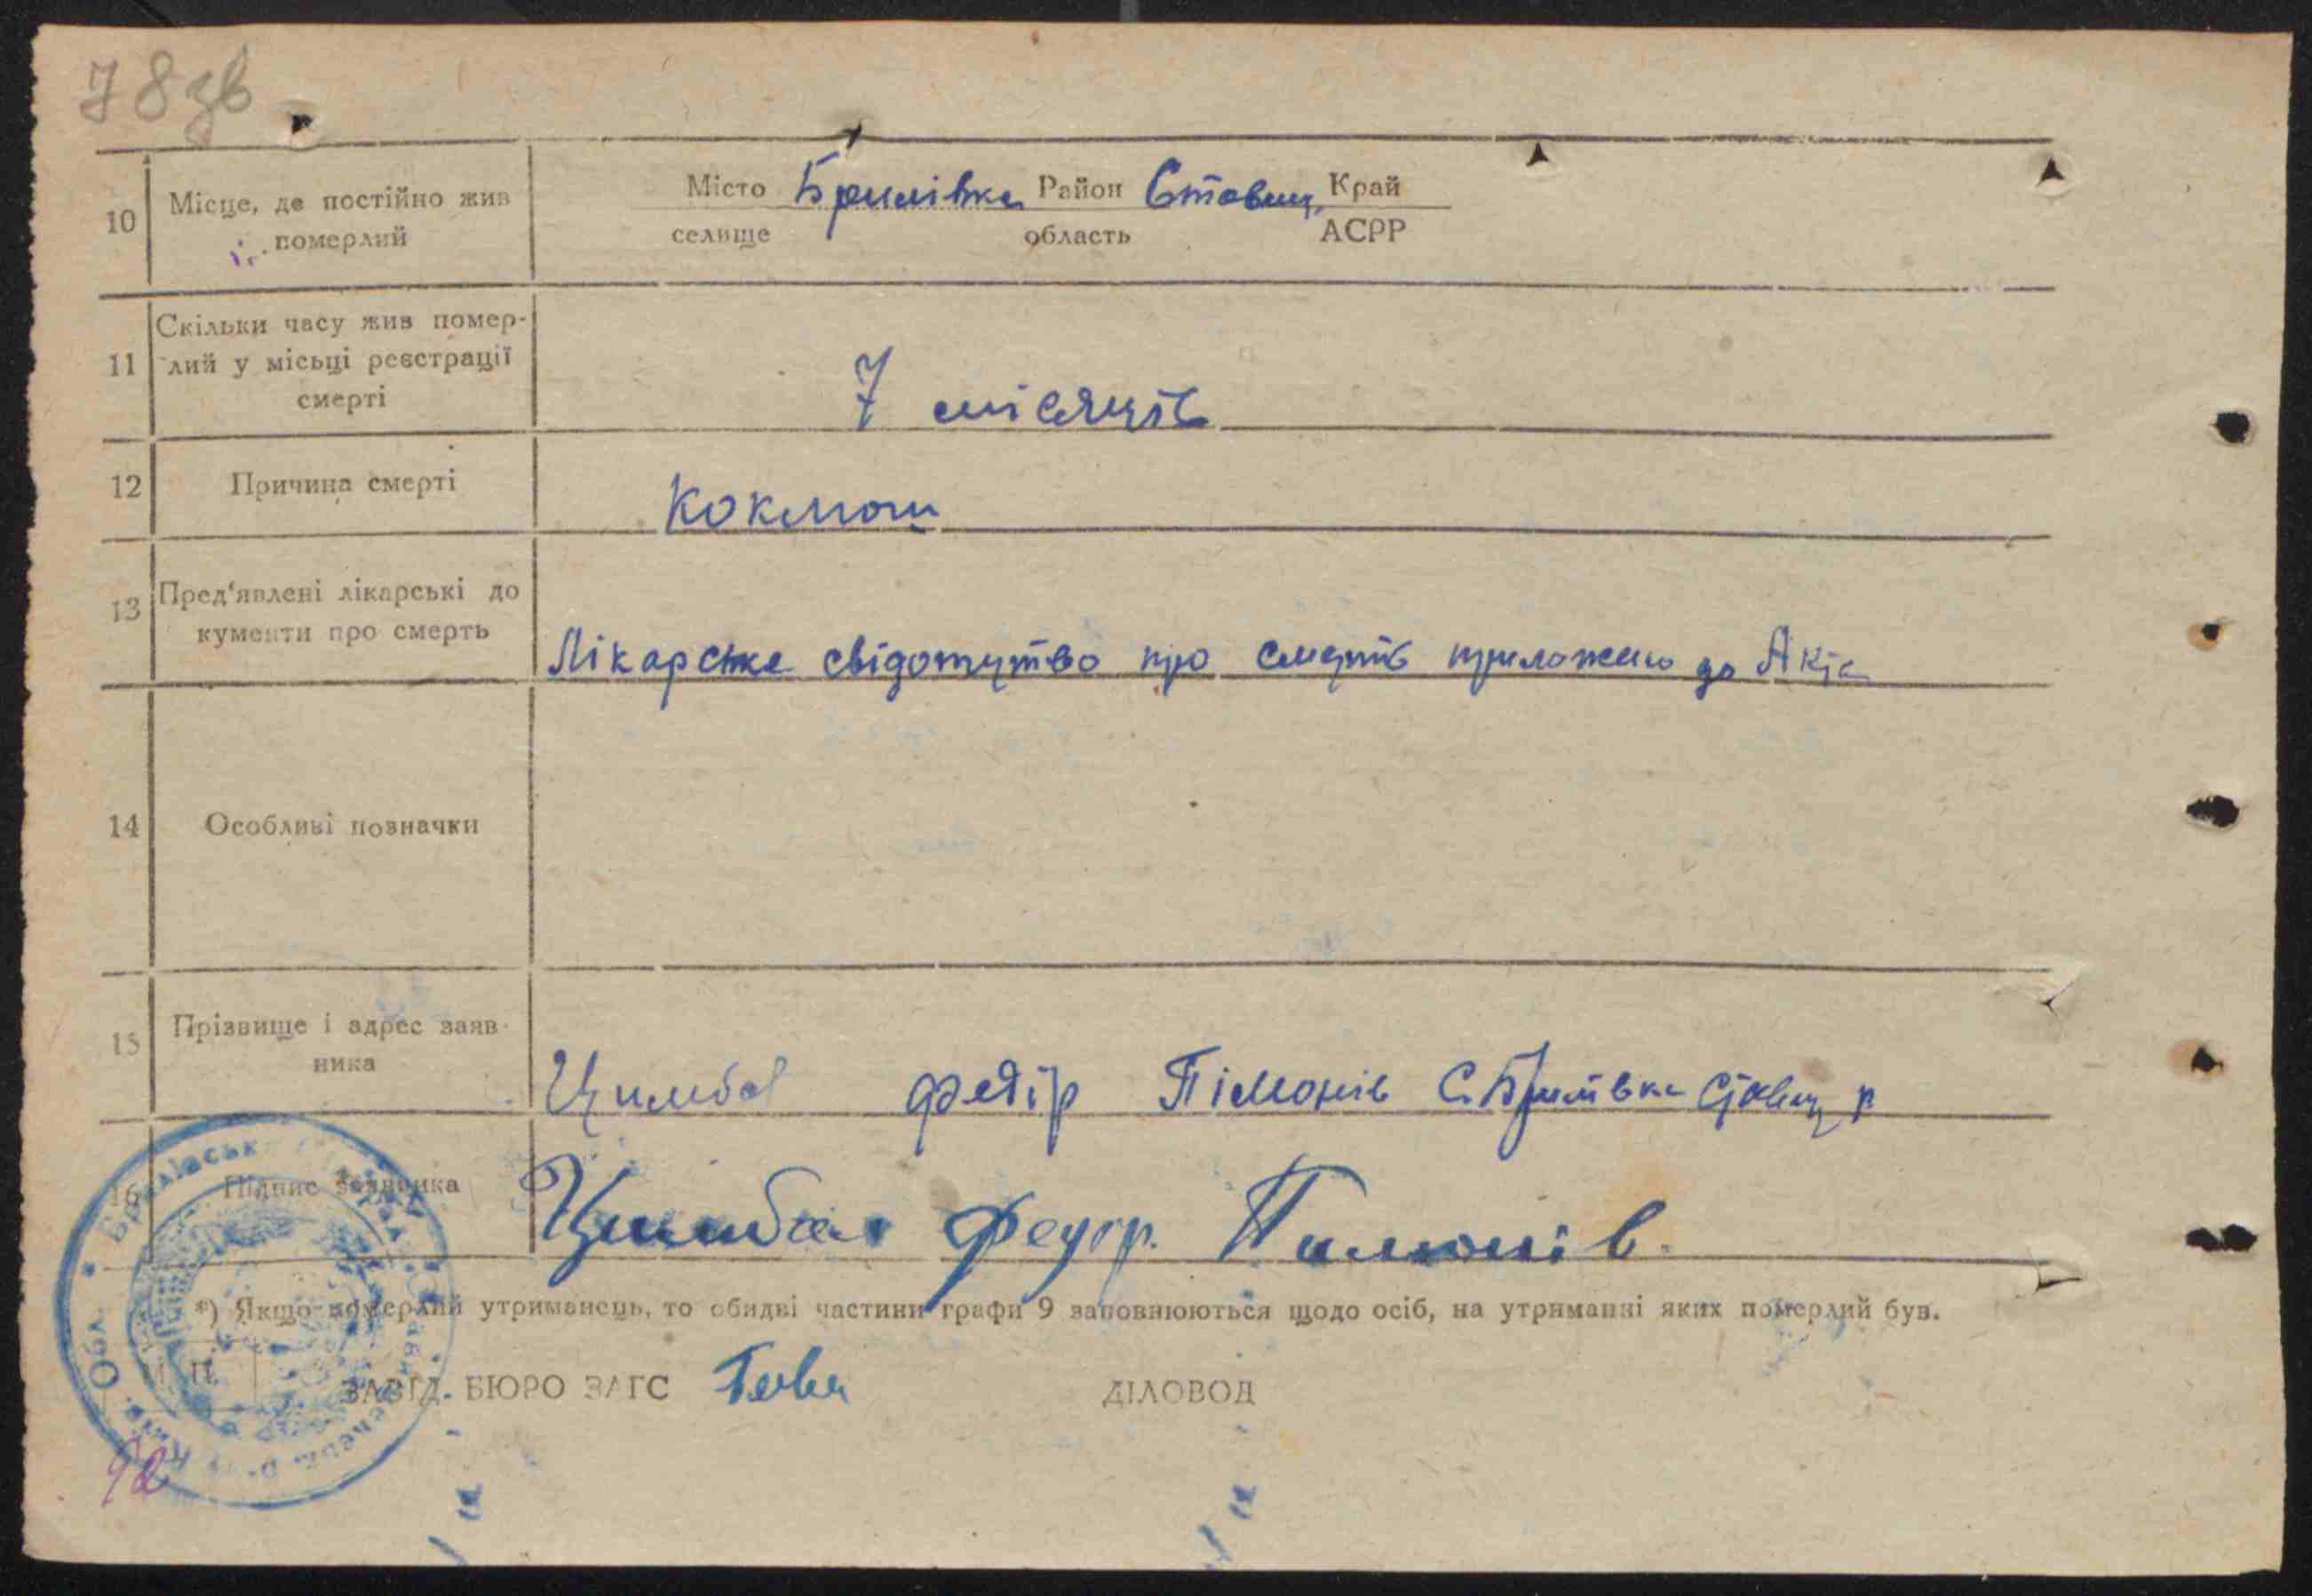 78зв
10 Місце, де постійно жив
померлий
Місто Брилівка Район Ставищ. Край
селище область АСРР
11 Скільки часу жив помер-
лий у місьці реєстрації
смерті
7 місяців
12 Причина смерті
Коклюш
13 Пред'явлені лікарські до
кументи про смерть
Лікарське свідотцтво про смерть приложено до Акта
14 Особливі позначки
15 Прізвище і адрес заяв-
ника
Цимбал Федір Пімонів С. Брилівка Ставищ р
16 Підпис заявника
Цимбал Федор. Пимонів.
*) Якщо померлий утриманець, то обидві частини графи 9 заповнюються щодо осіб, на утриманні яких померлий був.
П.
ЗАВІД. БЮРО ЗАГС ДІЛОВОД